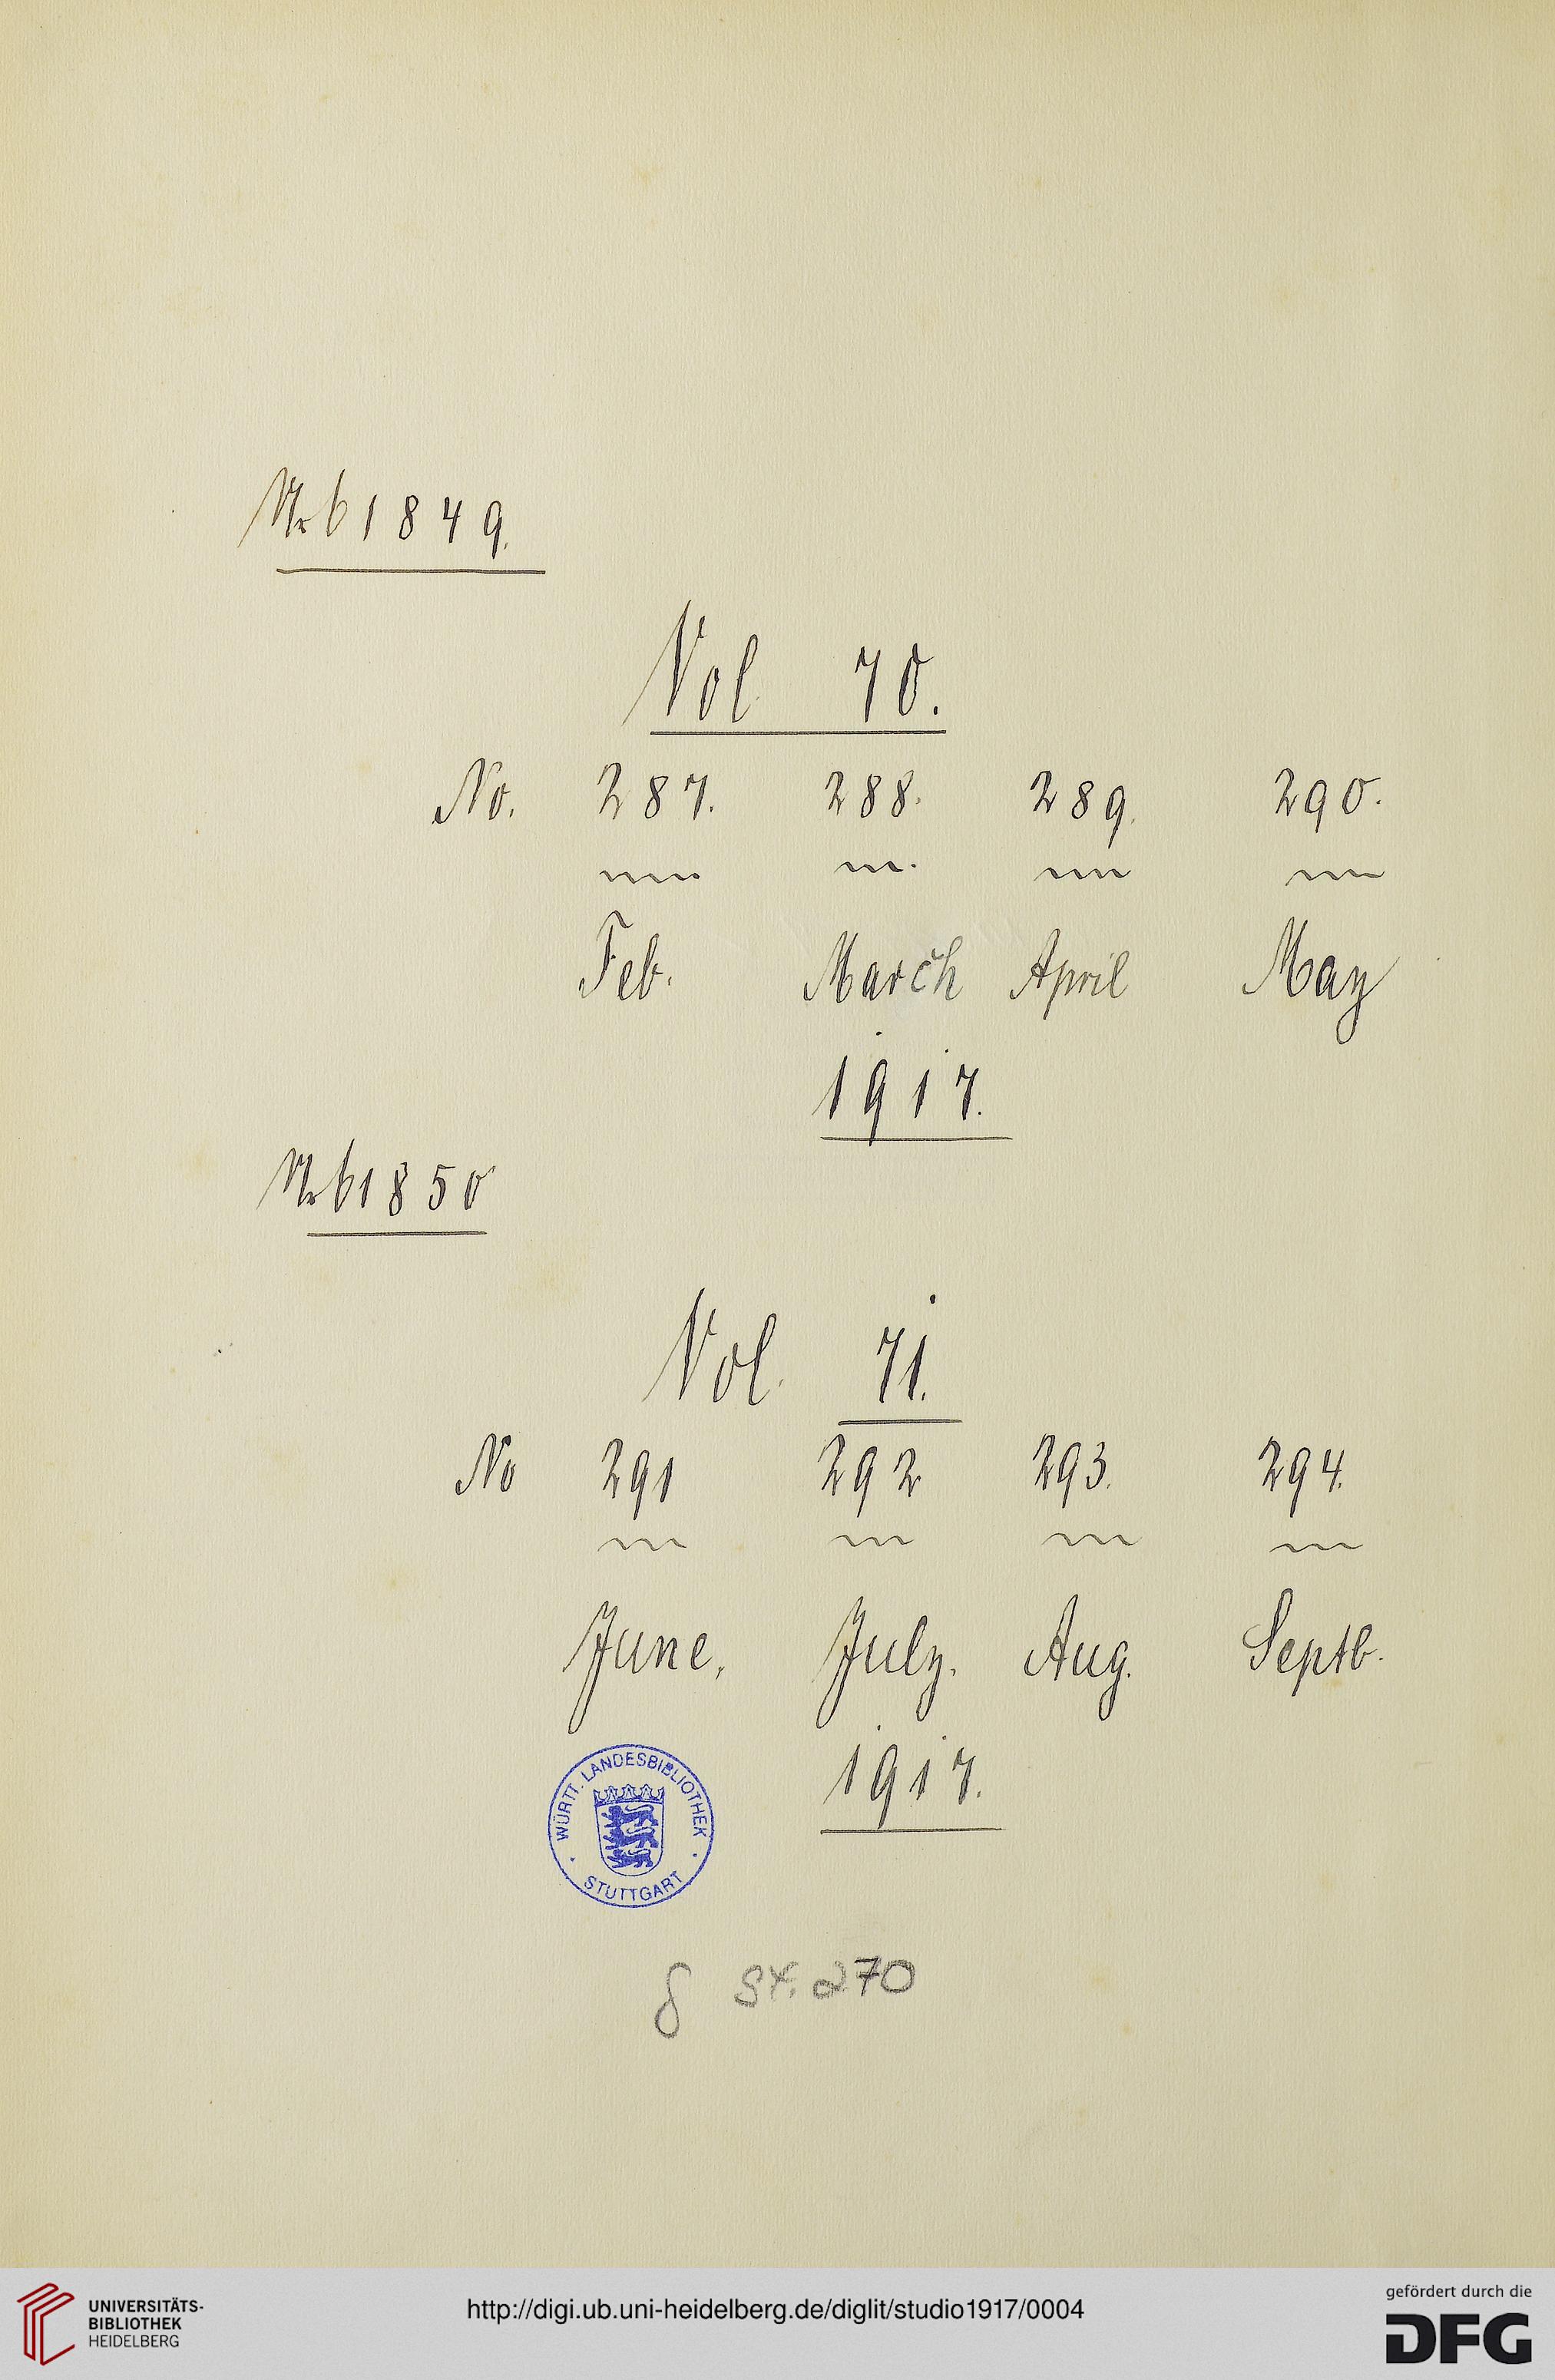 Nr 61849.
Vol 70.
No. 287. 288. 289. 290.
Feb. March April May
1917.
Nr 61850
Vol. 71.
No 291 292 293. 294.
June. July. Aug. Septb.
1917.
WÜRTT. LANDESBIBLIOTHEK
STUTTGART
270
UNIVERSITÄTS-
BIBLIOTHEK
HEIDELBERG
http://digi.ub.uni-heidelberg.de/diglit/studio1917/0004
gefördert durch die
DFG